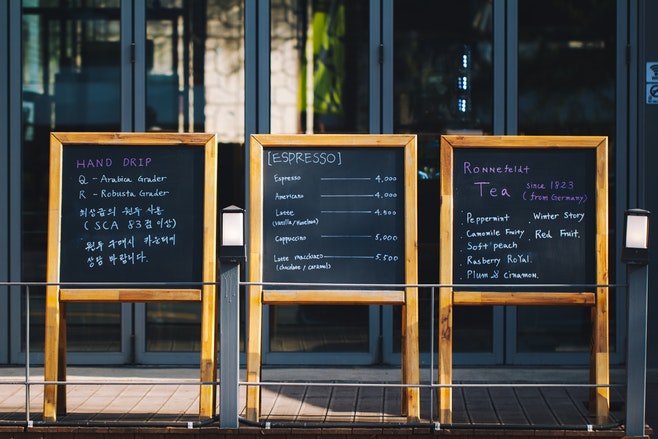 HAND DRIP
Q - Arabica Grader
R - Robusta Grader
최상급의 원두 사용
( SCA 83점 이상)
원두 구매시 카운터에
상담 바랍니다.
[ESPRESSO]
Espresso 4,000
Americano 4,000
Latte 4,500
(vanilla / Hazelnut)
Cappuccino 5,000
Latte macchiato 5,500
(chocolate / caramel)
Ronnefeldt
Tea since 1823
(from Germany)
Peppermint Winter Story
Camomile Fruity Red Fruit.
Soft peach
Rasberry RoYal.
Plum & cinamon.